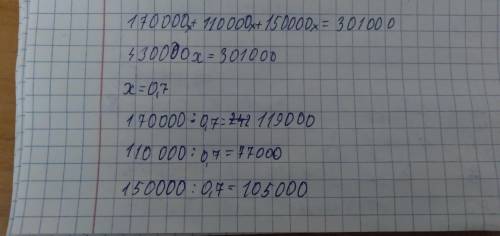 170000x+110000x+150000x=301000
430000x=301000
x=0,7
170000:0,7=119000
110 000:0,7=77000
150000:0,7=105000